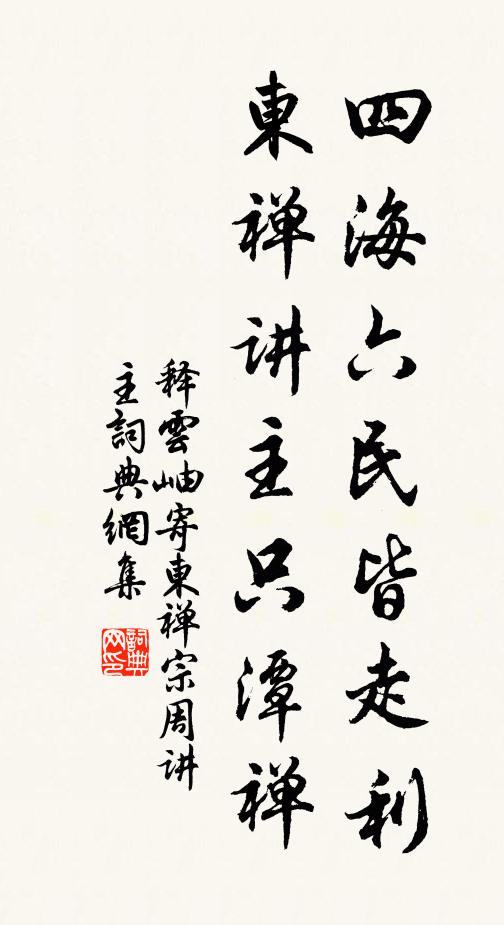 四海六民皆走利
東禅讲主只潭禅
释雲岫寄東禅宗周讲
主詞典網集
詞典网印